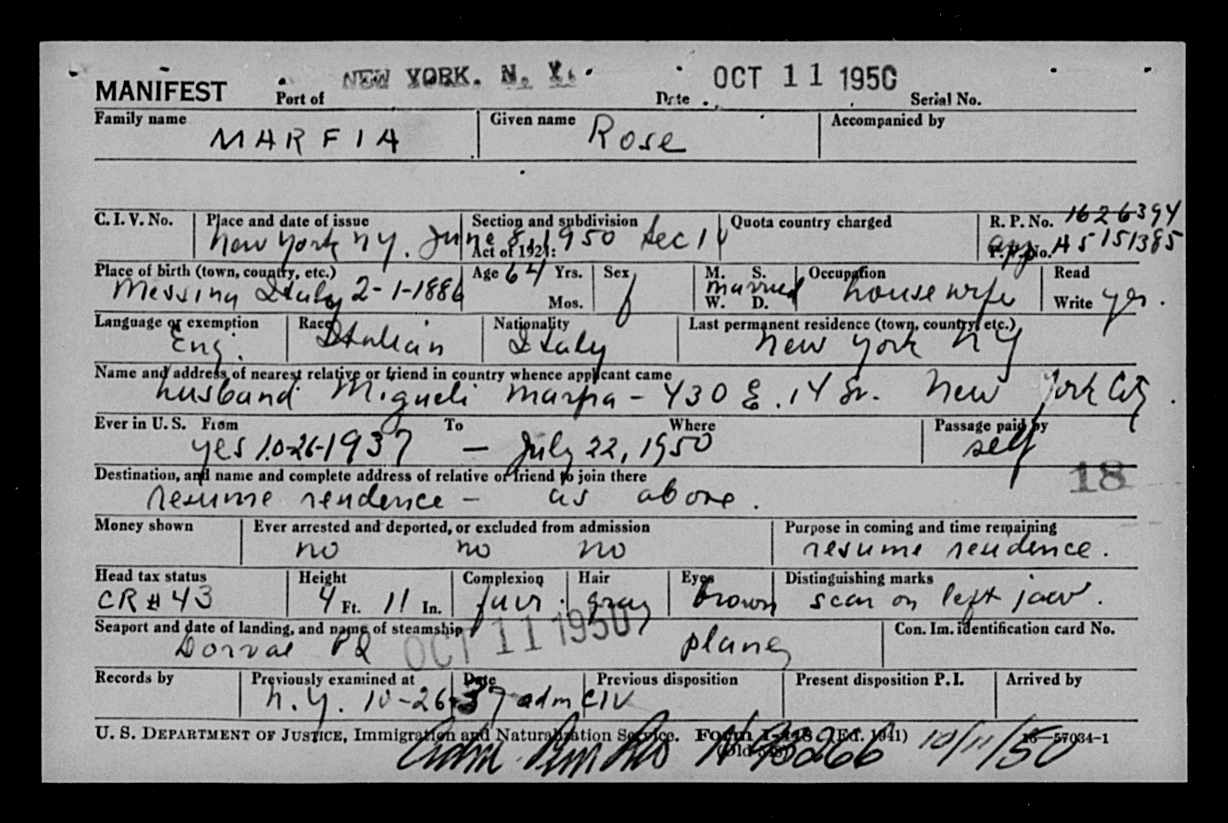 MANIFEST Port of NEW YORK. N. Y. Date OCT 11 1950 Serial No.
Family name MARFIA Given name Rose Accompanied by
C. I. V. No. Place and date of issue Section and subdivision Quota country charged R. P. No. 1626394
New York NY. June 8, 1950 Sec 14 Act of 1924: app A5151385
Place of birth (town, country, etc.) Age 64 Yrs. Sex M. S. Occupation Read
Messina Italy 2-1-1886 Mos. f married W. D. housewife Write yes.
Language or exemption Race Nationality Last permanent residence (town, country, etc.)
Eng. Italian Italy New York NY
Name and address of nearest relative or friend in country whence applicant came
husband Migueli Marfia - 430 E. 14 St. New York City.
Ever in U. S. From To Where Passage paid by
yes 10-26-1937 — July 22, 1950 self
Destination, and name and complete address of relative or friend to join there 18
resume residence - as above.
Money shown Ever arrested and deported, or excluded from admission Purpose in coming and time remaining
no no no resume residence.
Head tax status Height Complexion Hair Eyes Distinguishing marks
CR # 43 4 Ft. 11 In. fair gray brown scar on left jaw.
Seaport and date of landing, and name of steamship Con. Im. identification card No.
Dorval PQ OCT 11 1950 plane
Records by Previously examined at Date Previous disposition Present disposition P. I. Arrived by
N.Y. 10-26-37 adm CIV
U. S. DEPARTMENT OF JUSTICE, Immigration and Naturalization Service. Form I-448 (Ed. 1941) 16—57034-1
10/11/50